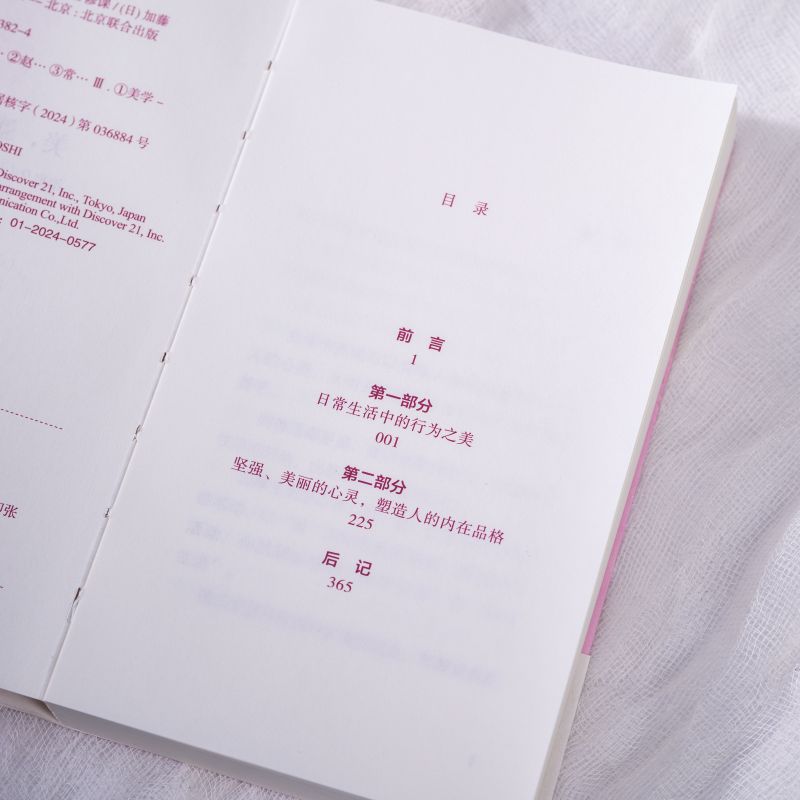 修课/(日)加藤
-- 北京:北京联合出版
382-4
·②赵… ③常… Ⅲ.①美学-
核字(2024)第036884号
OSHI
Discover 21, Inc., Tokyo, Japan
arrangement with Discover 21, Inc.
nication Co.,Ltd.
: 01-2024-0577
印张
目 录
前 言
1
第一部分
日常生活中的行为之美
001
第二部分
坚强、美丽的心灵,塑造人的内在品格
225
后 记
365